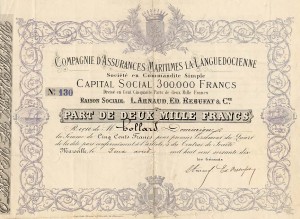 COMPAGNIE D'ASSURANCES MARITIMES LA LANGUEDOCIENNE
Société en Commandite Simple
CAPITAL SOCIAL 300.000 FRANCS
Divisé en Cent Cinquante Parts de Deux Mille Francs
RAISON SOCIALE. L. ARNAUD, ED. REBUFAY & Cie
N° 130
PART DE DEUX MILLE FRANCS
Reçu de Mr Collard
la Somme de Cinq Cents Francs pour premier Versement du Quart
de la dite part conformément à l'article 6 des Statuts de Société
Marseille, le mil huit cent soixante dix
les Gérants